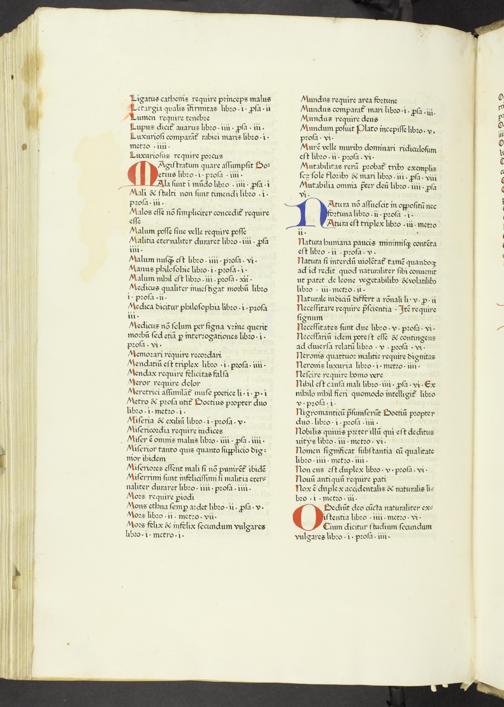 Ligatus cathenis require princeps malus
Letargia qualis ifirmitas libro · i · psa · ii
Lumen require tenebre
Lupus dicit auarus libro · iiii · psa · iii ·
Luxuriosi comparat rabiei maris libro ·
metro · iiii ·
Luxuriosus require porcus
Magistratum quare assumpsit Bo
etius libro · i · prosa · iiii ·
Mala sunt i mudo libro · iiii · psa · i
Mali & stulti non sunt timendi libro · i ·
prosa · iii ·
Malos esse no simpliciter concedit require
esse
Malum posse siue velle require posse
Malitia eternaliter duraret libro · iiii · psa
iiii ·
Malum nusq est libro · iiii · prosa · vi ·
Manus philosophie libro · i · prosa · i ·
Malum nihil est libro · iii · prosa · xii ·
Medicus qualiter inuestigat morbu libro
i · prosa · ii ·
Medica dicitur philosophia libro · i · prosa
iii
Medicus no solum per signa vrine querit
morbu sed etia p interrogationes libro · i ·
prosa · vi ·
Memorari require recordari
Mendatiu est triplex libro · i · prosa · iiii ·
Mendax require felicitas falsa
Meror require dolor
Meretrici assimilat muse poetice li · i · p · i
Metro & prosa utit Boetius propter duo
libro · i · metro · i ·
Miseria & exiliu libro · i · prosa · v ·
Misericordia require iudices
Miser e omnis malus libro · iiii · psa · iiii ·
Miserior tanto quis quanto supplicio dig-
nior ibidem
Miseriores essent mali si no punirent ibide
Miserrimi sunt infelicissimi si malitia eters
naliter duraret libro · iiii · prosa · iiii ·
Mors require piodi
Mons ethna semp ardet libro · ii · psa · v ·
Mors libro · ii · metro · vii ·
Mors felix & infelix secundum vulgares
libro · i · metro · i ·
Mundus require area fortune
Mundus comparat mari libro · i · psa · iii ·
Mundus require deus
Mundum posuit Plato incepisse libro · v ·
prosa · vi ·
Mure velle muribo dominari ridiculosum
est libro · ii · prosa · vi ·
Mutabilitas reru probat tribo exemplis
sez sole floribo & mari libro · ii · psa · viii
Mutabilia omnia pter deu libro · iiii · psa ·
vi ·
Natura no assuescit in oppositu nec
fortuna libro · ii · prosa · i ·
Natura est triplex libro · iii · metro
ii ·
Natura humana paucis minimisq conteta
est libro · ii · prosa · v ·
Natura si interdu violetat tame quandoq
ad id redit quod naturaliter sibi conuenit
ut patet de leone vegetabilibo & volatilibo
libro · iii · metro · ii ·
Naturale iudiciu differt a ronali li · v · p · ii
Necessitare require pscientia · Ite require
signum
Necessitates sunt due libro · v · prosa · vi ·
Necessariu idem potest esse & contingens
ad diuersa relatu libro · v · prosa · vi ·
Neronis quattuor malitie require dignitas
Neronis luxuria libro · i · metro · iiii ·
Nescire require homo vere
Nihil est causa mali libro · iiii · psa · vi · Ex
nihilo nihil fieri quomodo intelligit libro
v · prosa · i ·
Nigromantici psumserut Boetiu propter
duo · libro · i · prosa · iiii ·
Nobilis quiuis preter illu qui est deditus
uitijs libro · iii · metro · vi ·
Nomen significat substantia cu qualitate
libro · iiii · metro · iiii ·
Non ens est duplex libro · v · prosa · vi ·
Noui antiqui require pati
Nox e duplex accidentalis & naturalis li-
bro · i · metro · iii ·
Obediut deo cucta naturaliter ex-
istentia libro · iiii · metro · vi ·
Ocium dicitur studium secundum
vulgares libro · i · prosa · iiii ·